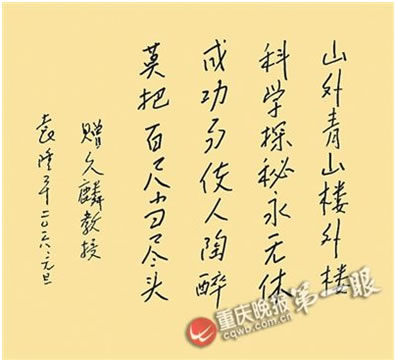 山外青山楼外楼
科学探秘永无休
成功易使人陶醉
莫把百尺当尽头
赠久麟教授
袁隆平 二〇〇六.元旦
重庆晚报 第一眼
cqwb.com.cn